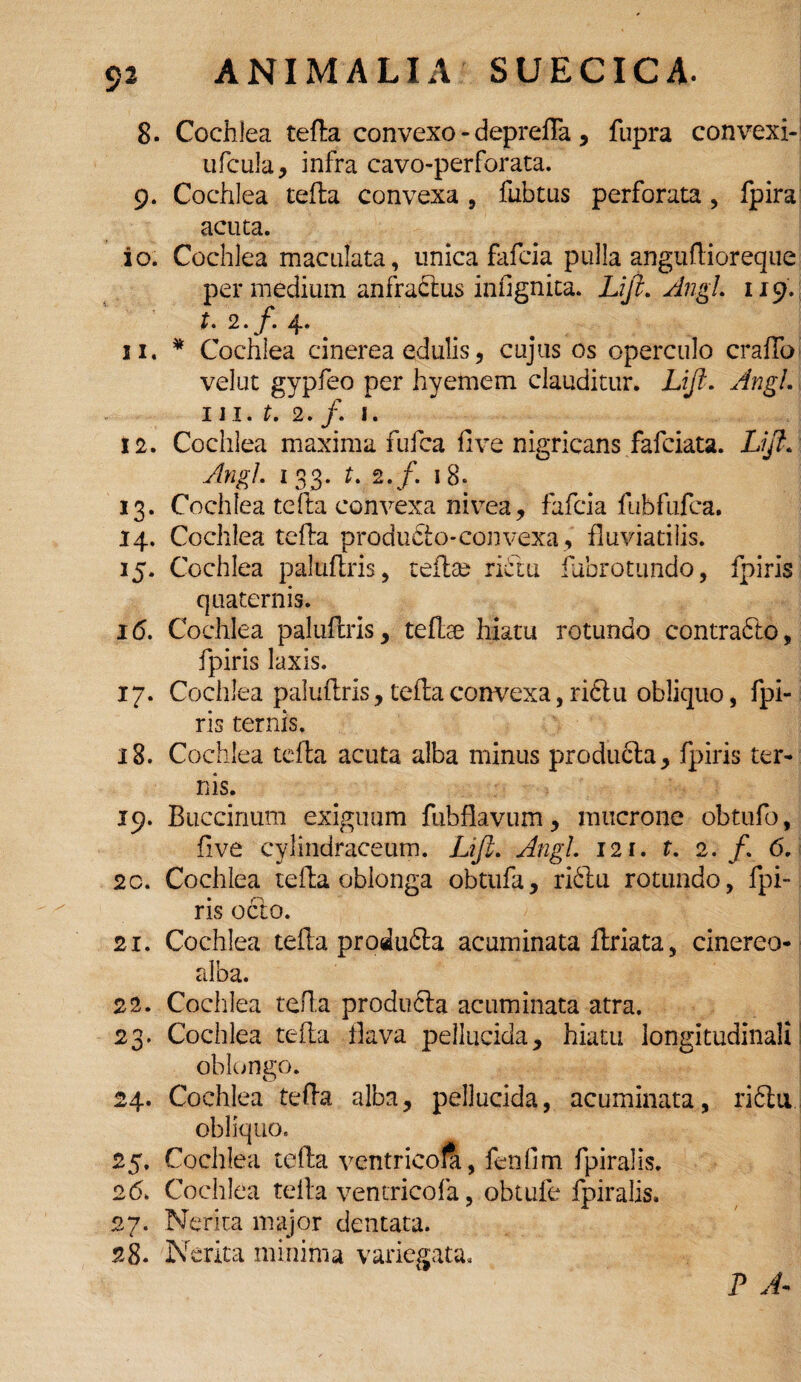 92 ANIMALIA SUECICA.
8. Cochlea teſta convexo-depreſſa, ſupra convexi-
uſcula, infra cavo-perforata.
9. Cochlea teſta convexa, ſubtus perforata, ſpira
acuta.
10. Cochlea maculata, unica faſcia pulla anguſtioreque
per medium anfractus inſignita. Liſt. Angl. 119.
t. 2. f. 4.
11. * Cochlea cinerea edulis, cujus os operculo craſſo
velut gypſeo per hyemem clauditur. Liſt. Angl.
111. t. 2. f. 1.
12. Cochlea maxima fuſca ſive nigricans faſciata. Liſt.
Angl. 133. t. 2. f. 18.
13. Cochlea teſta convexa nivea, faſcia ſubfuſca.
14. Cochlea teſta producto-convexa, fluviatilis.
15. Cochlea paluſtris, teſtæ rictu ſubrotundo, ſpiris
quaternis.
16. Cochlea paluſtris, teſtæ hiatu rotundo contracto,
ſpiris laxis.
17. Cochlea paluſtris, teſta convexa, rictu obliquo, ſpi-
ris ternis.
18. Cochlea teſta acuta alba minus producta, ſpiris ter-
nis.
19. Buccinum exiguum ſubflavum, mucrone obtuſo,
ſive cylindraceum. Liſt. Angl. 121. t. 2. f. 6.
20. Cochlea teſta oblonga obtuſa, rictu rotundo, ſpi-
ris octo.
21. Cochlea teſta producta acuminata ſtriata, cinereo-
alba.
22. Cochlea teſta producta acuminata atra.
23. Cochlea teſta flava pellucida, hiatu longitudinali
oblongo.
24. Cochlea teſta alba, pellucida, acuminata, rictu
obliquo.
25. Cochlea teſta ventricoſa, ſenſim ſpiralis.
26. Cochlea teſta ventricoſa, obtuſe ſpiralis.
27. Nerita major dentata.
28. Nerita minima variegata.
P A-